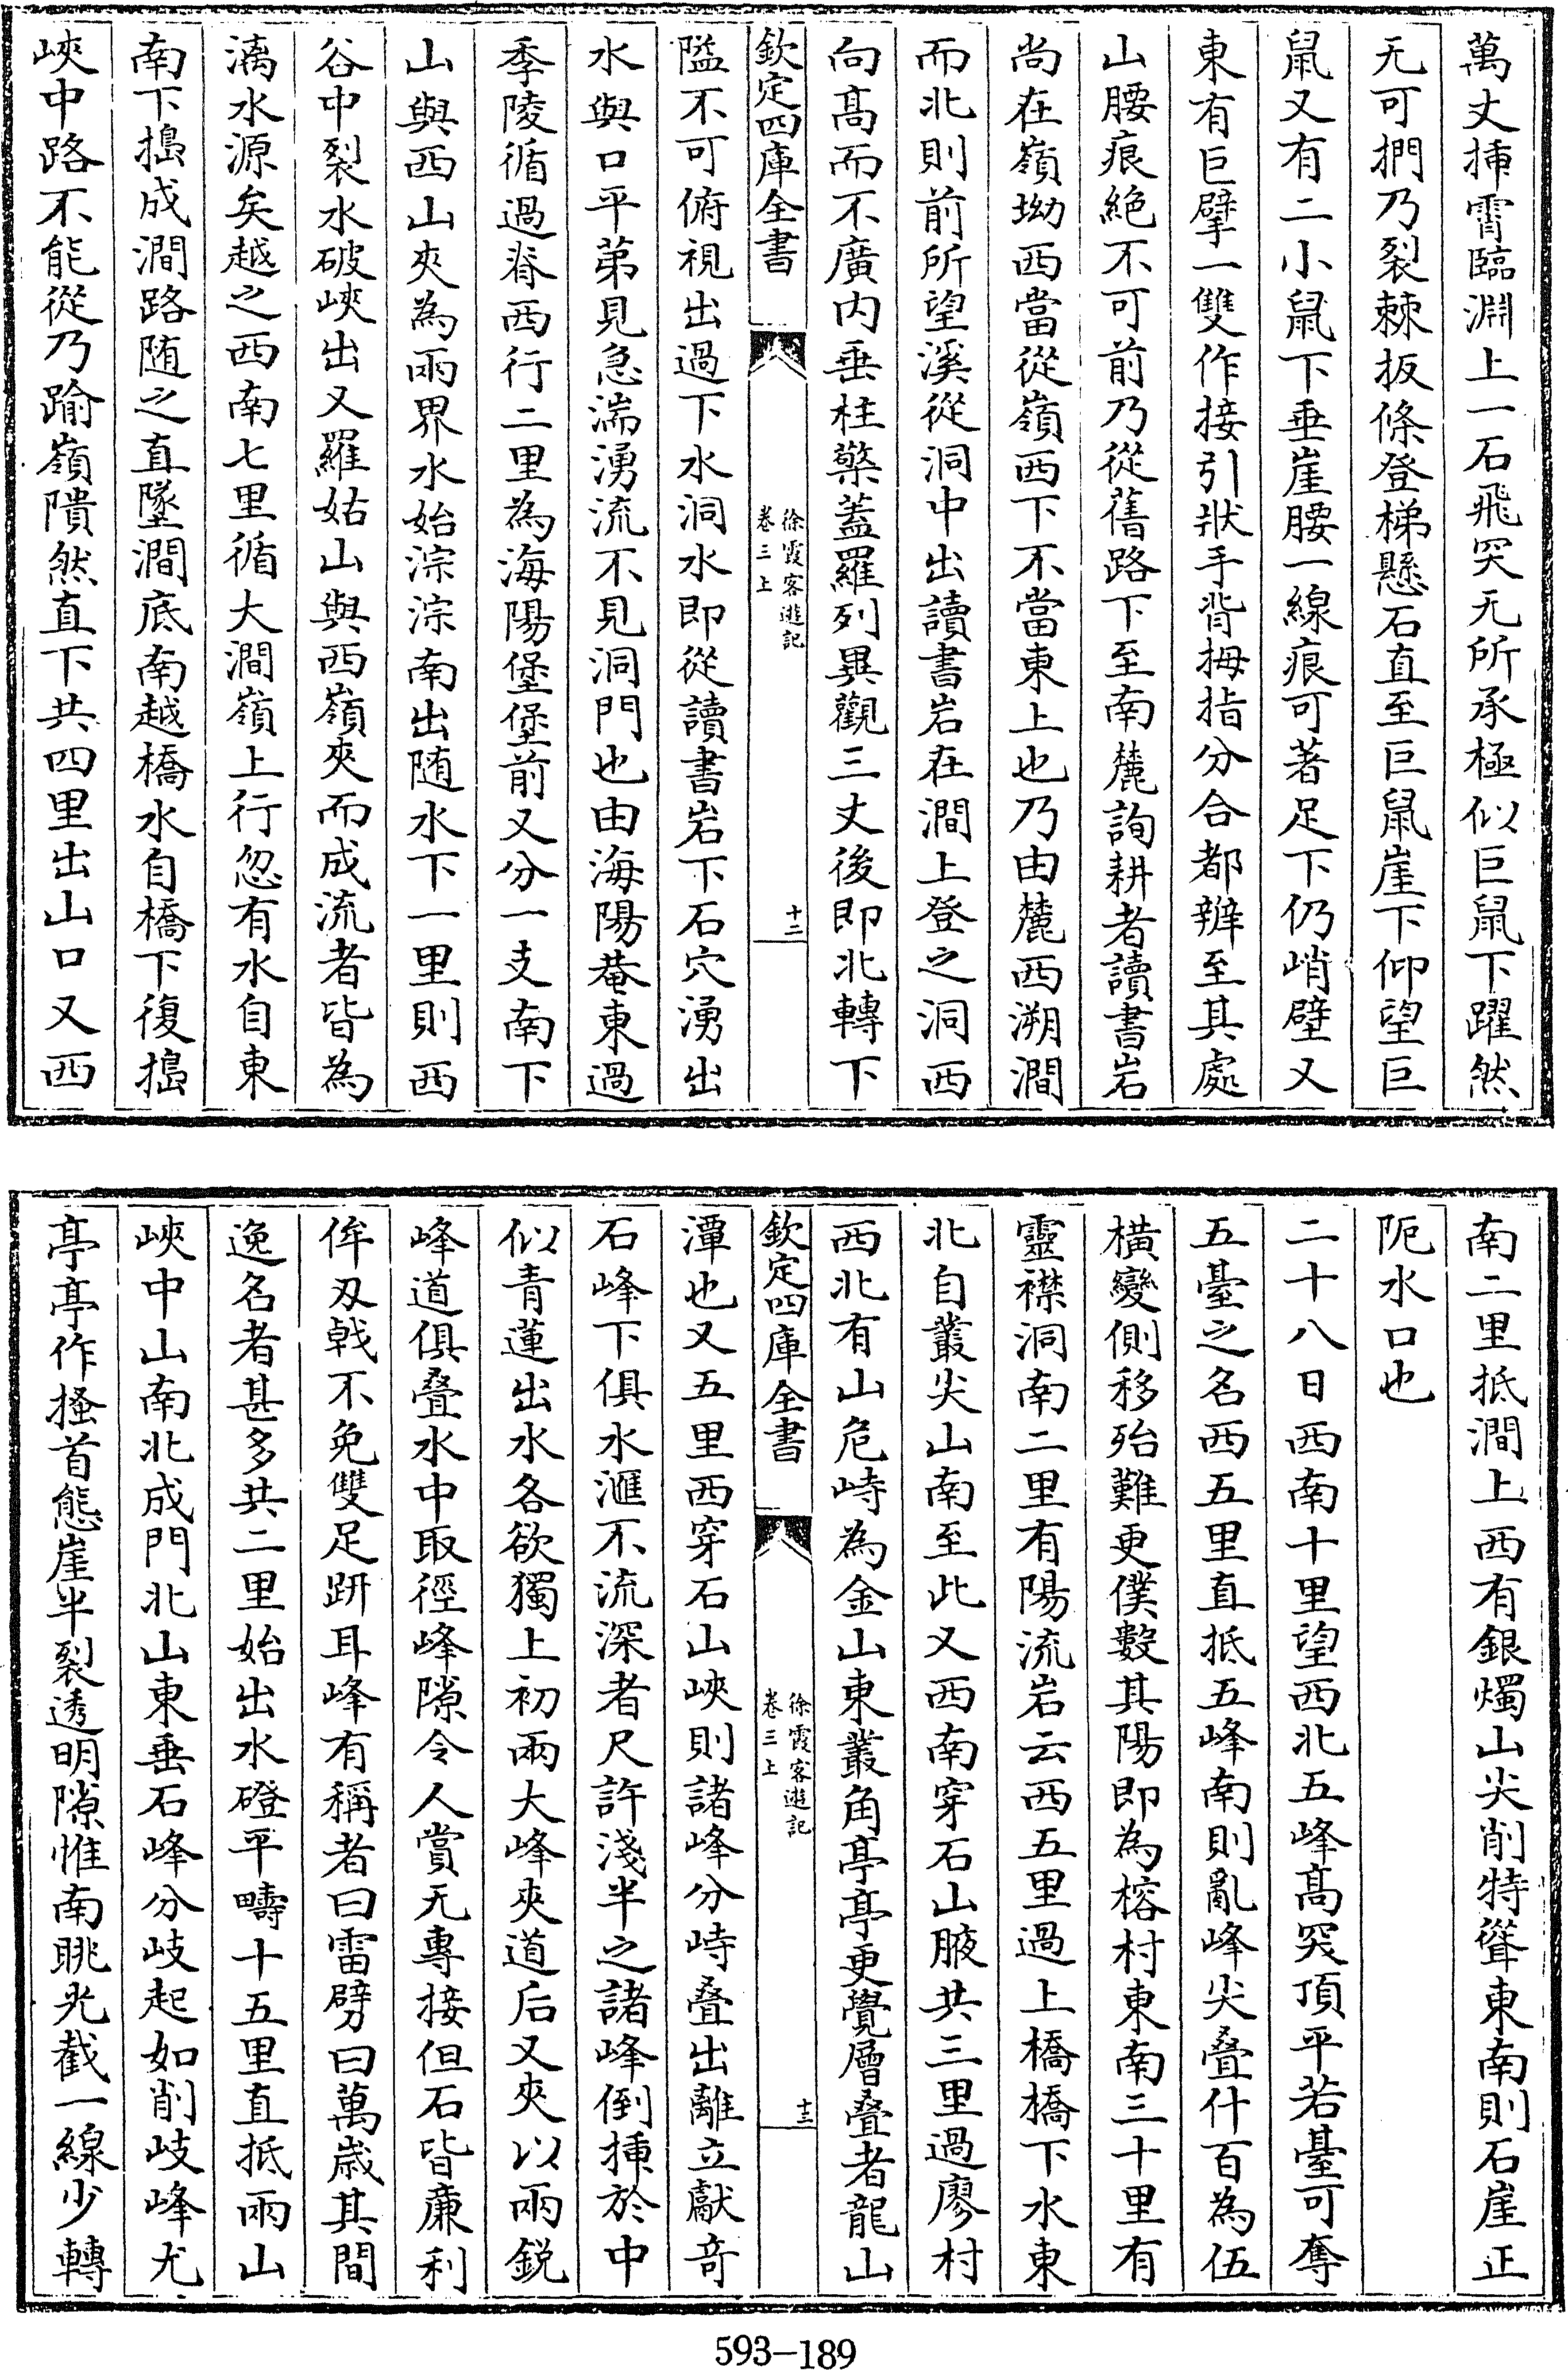 萬丈揷霄臨淵上一石飛突无所承極似巨鼠下躍然
无可捫乃裂棘扳條登梯懸石直至巨鼠崖下仰望巨
鼠又有二小鼠下垂崖腰一線痕可著足下仍峭壁又
東有巨擘一雙作接引狀手背拇指分合都辨至其處
山腰痕絶不可前乃從舊路下至南麓詢耕者讀書岩
尚在嶺坳西當從嶺西下不當東上也乃由麓西溯澗
而北則前所望溪從洞中出讀書岩在澗上登之洞西
向高而不廣内垂柱檠蓋羅列異觀三丈後即北轉下
欽定四庫全書
徐霞客遊記
卷三上
十二
隘不可俯視出過下水洞水即從讀書岩下石穴湧出
水與口平苐見急湍湧流不見洞門也由海陽菴東過
季陵循過脊西行二里為海陽堡堡前又分一支南下
山與西山夾為兩界水始淙淙南出随水下一里則西
谷中裂水破峽出又羅姑山與西嶺夾而成流者皆為
漓水源矣越之西南七里循大澗嶺上行忽有水自東
南下搗成澗路随之直墜澗底南越橋水自橋下復搗
峽中路不能從乃踰嶺隤然直下共四里出山口又西
南二里抵澗上西有銀燭山尖削特聳東南則石崖正
阨水口也
二十八日西南十里望西北五峰髙突頂平若臺可奪
五臺之名西五里直抵五峰南則亂峰尖叠什百為伍
橫變側移殆難更僕數其陽即為榕村東南三十里有
靈襟洞南二里有陽流岩云西五里過上橋橋下水東
北自叢尖山南至此又西南穿石山腋共三里過廖村
西北有山危峙為金山東叢角亭亭更覺層叠者龍山
欽定四庫全書
徐霞客遊記
卷三上
十三
潭也又五里西穿石山峽則諸峰分峙叠出離立獻竒
石峰下俱水滙不流深者尺許淺半之諸峰倒揷於中
似青蓮出水各欲獨上初兩大峰夾道后又夾以兩銳
峰道俱叠水中取徑峰隙令人賞无專接但石皆廉利
侔刄戟不免雙足趼耳峰有稱者曰雷劈曰萬歳其間
逸名者甚多共二里始出水磴平疇十五里直抵兩山
峽中山南北成門北山東垂石峰分岐起如削岐峰尤
亭亭作搔首態崖半裂透明隙惟南眺光截一線少轉
593-189